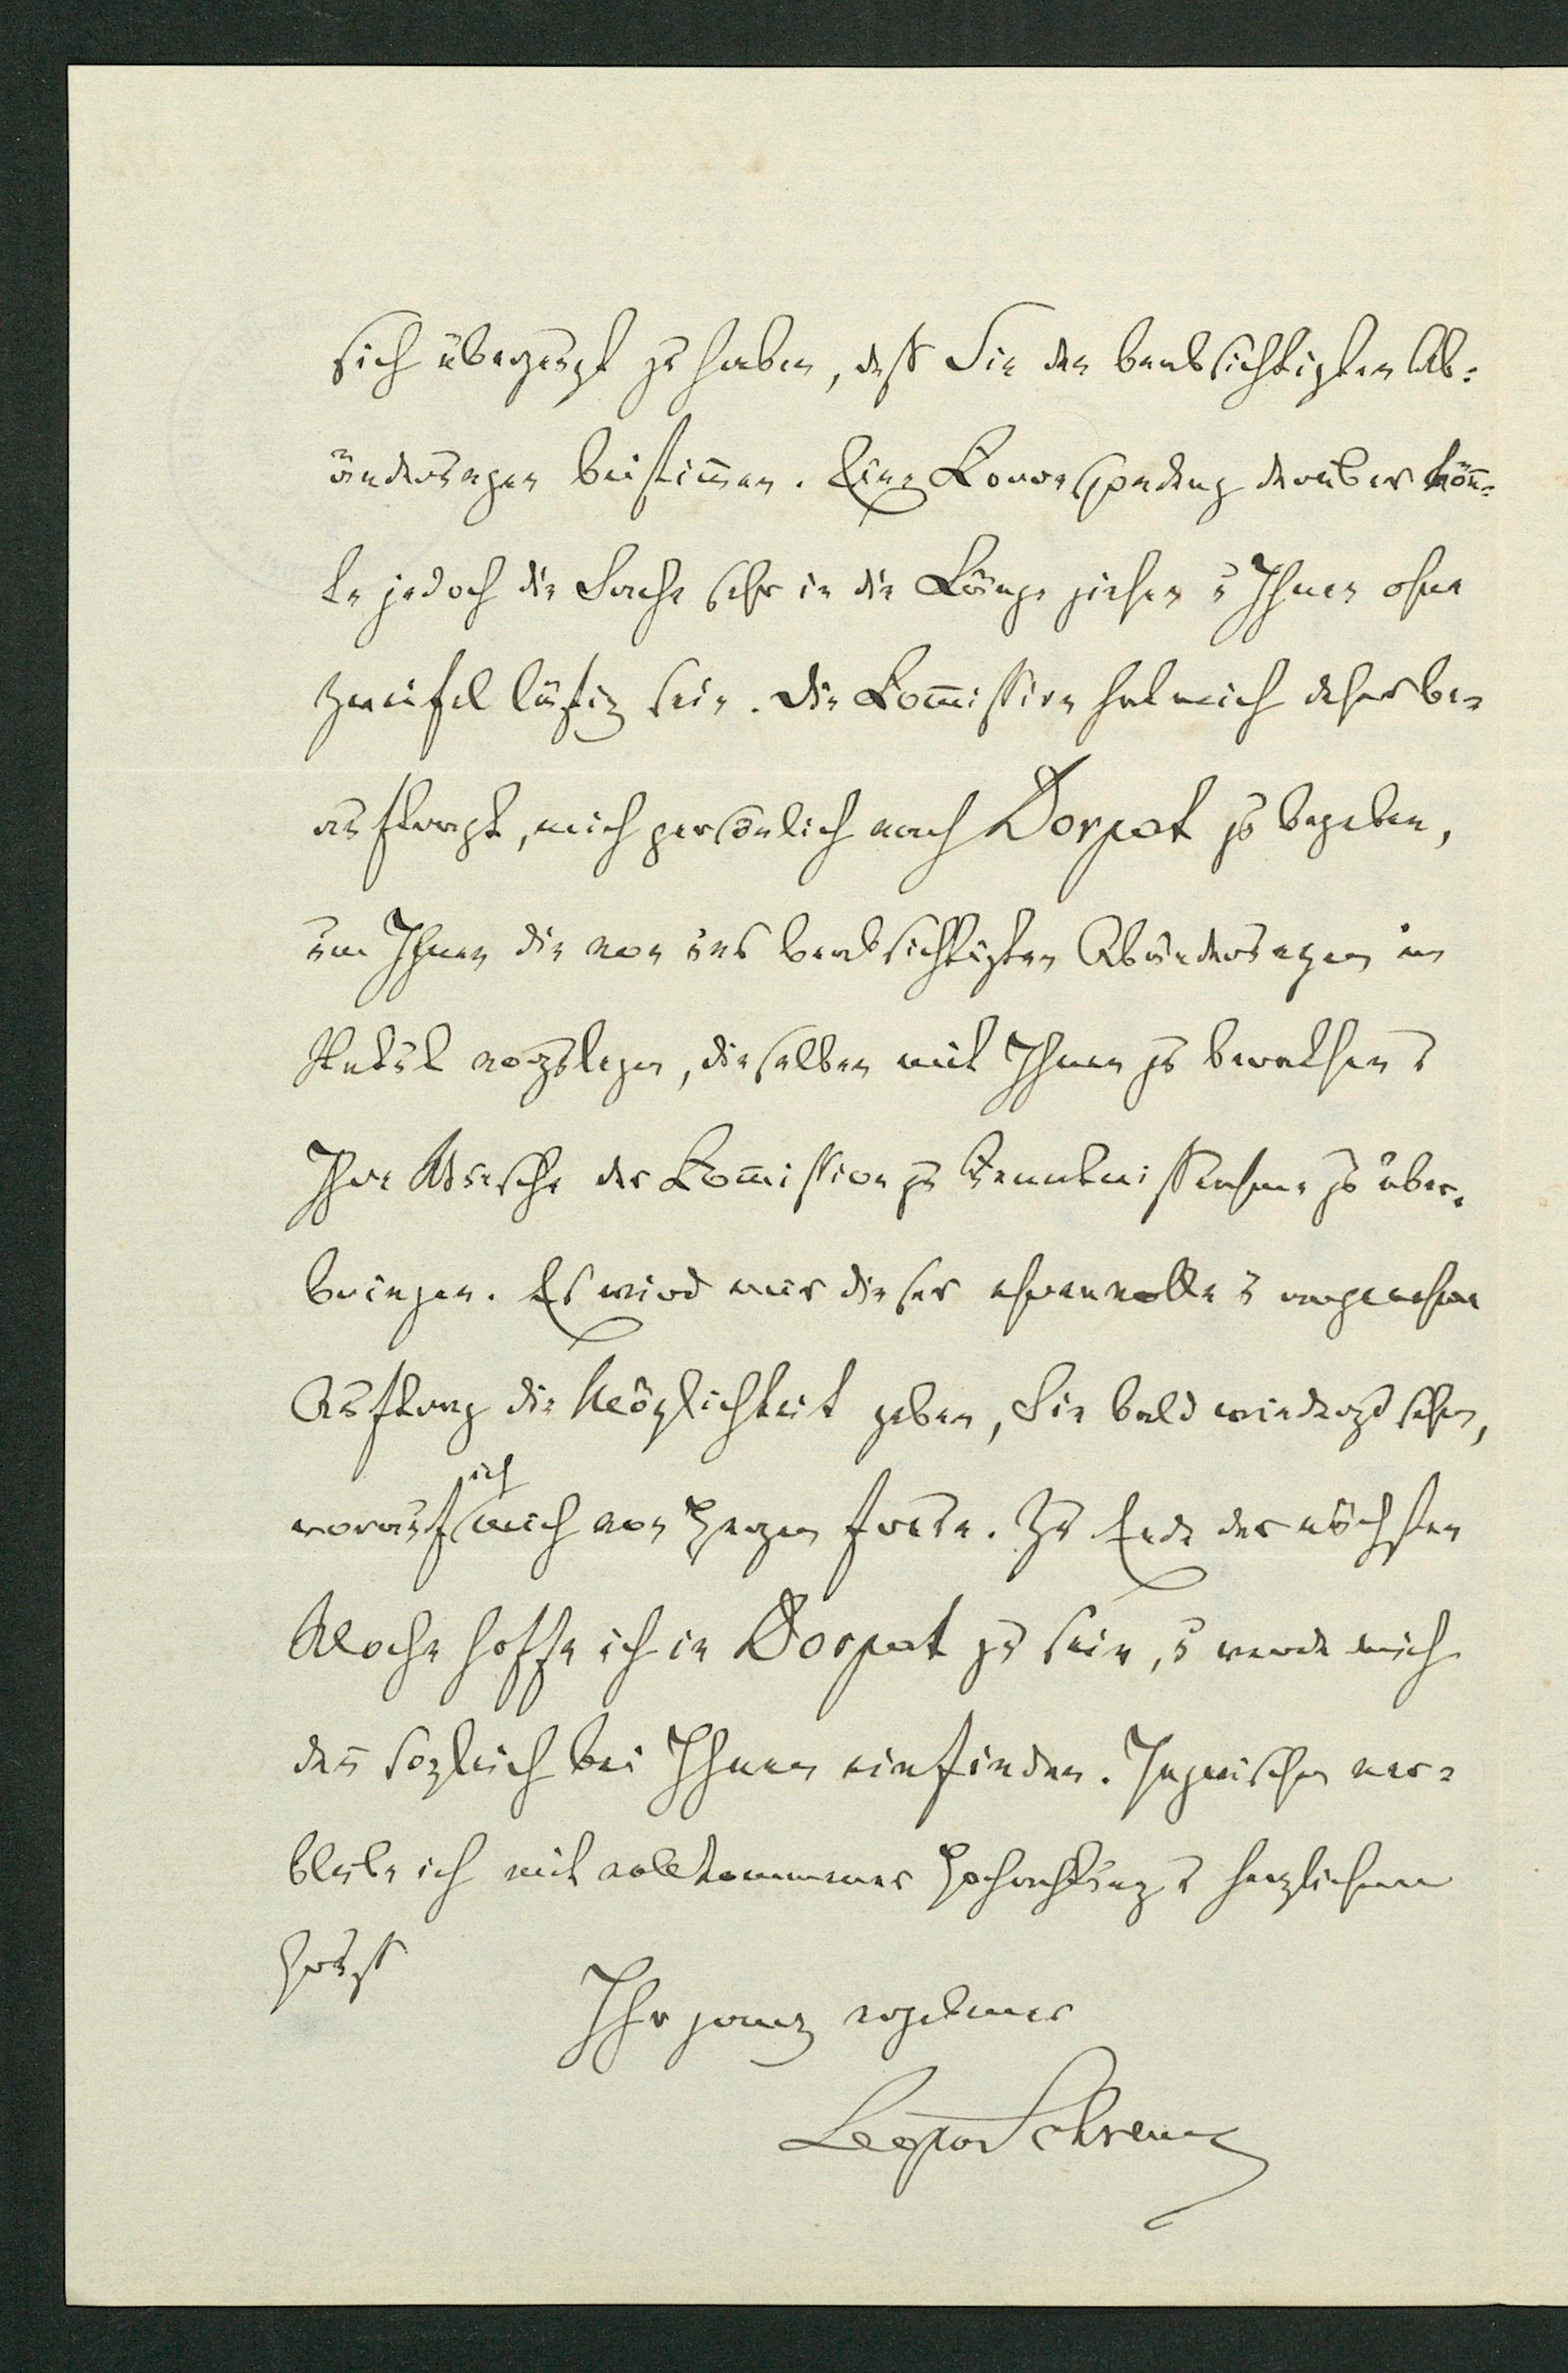 sich überzeugt zu haben, daß Sie den beabsichtigten Ab-
änderungen beistim̅en. Eine Korrespondenz darüber kön̅-
te jedoch die Sache sehr in die Länge ziehen u Ihnen ohne
Zweifel lästig sein. Die Kom̅ission hat mich daher be-
auftragt, mich persönlich nach Dorpat zu begeben,
um Ihnen die von uns beabsichtigten Abänderungen im
Statut vorzulegen, dieselben mit Ihnen zu berathen u
Ihre Wünsche der Kom̅ission zu Kenntnißnahme zu über-
bringen. Es wird mir dieser ehrenvolle u angenehme
Auftrag die Möglichkeit geben, Sie bald wiederzusehen,
worauf ich mich von Herzen freue. Zu Ende der nächsten
Woche hoffe ich in Dorpat zu sein, u werde mich
dan̅ sogleich bei Ihnen einfinden. Inzwischen ver-
bleibe ich mit vollkommener Hochachtung u herzlichem
Gruß
Ihr ganz ergebener
Leopold Schrenck